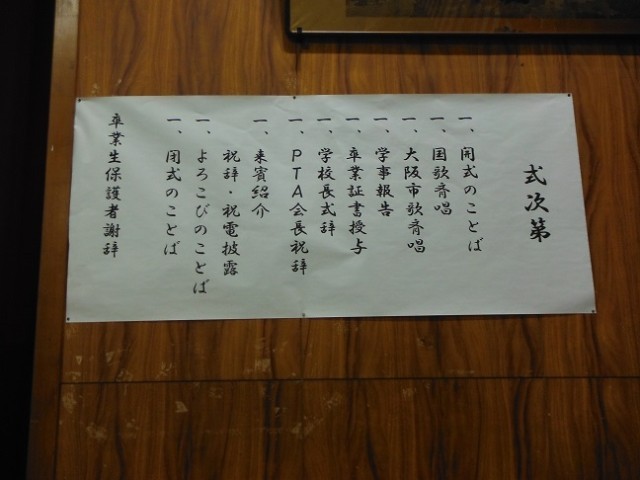 式次第
一、開式のことば
一、国歌斉唱
一、大阪市歌斉唱
一、学事報告
一、卒業証書授与
一、学校長式辞
一、PTA会長祝辞
一、来賓紹介
祝辞・祝電披露
一、よろこびのことば
一、閉式のことば
卒業生保護者謝辞